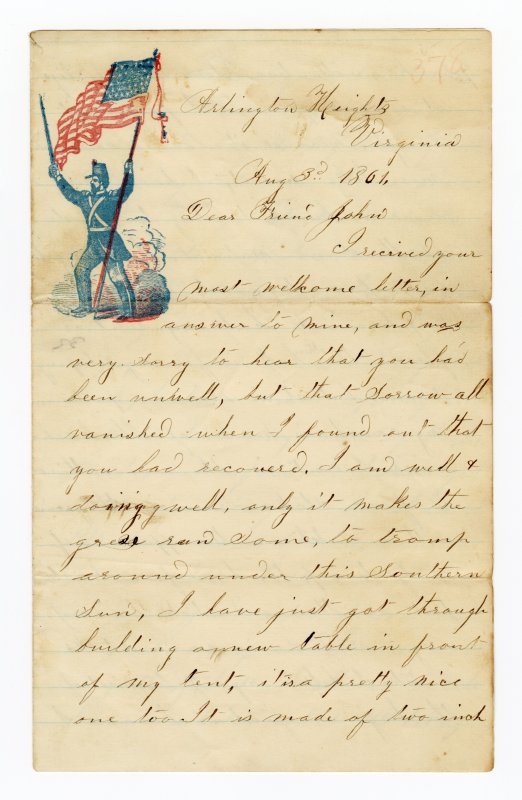 Arlington Heights
Virginia
Aug 3d. 1861.
Dear Friend John
I recived your
most wellcome letter, in
answer to mine, and was
very sorry to hear that you had
been unwell, but that sorrow all
vanished when I found out that
you had recoverd. I am well &
doing well, only it makes the
run some, to tromp
around under this Southern
Sun, I have just got through
building a new table in front
of my tent, it is a pretty nice
one too It is made of two inch